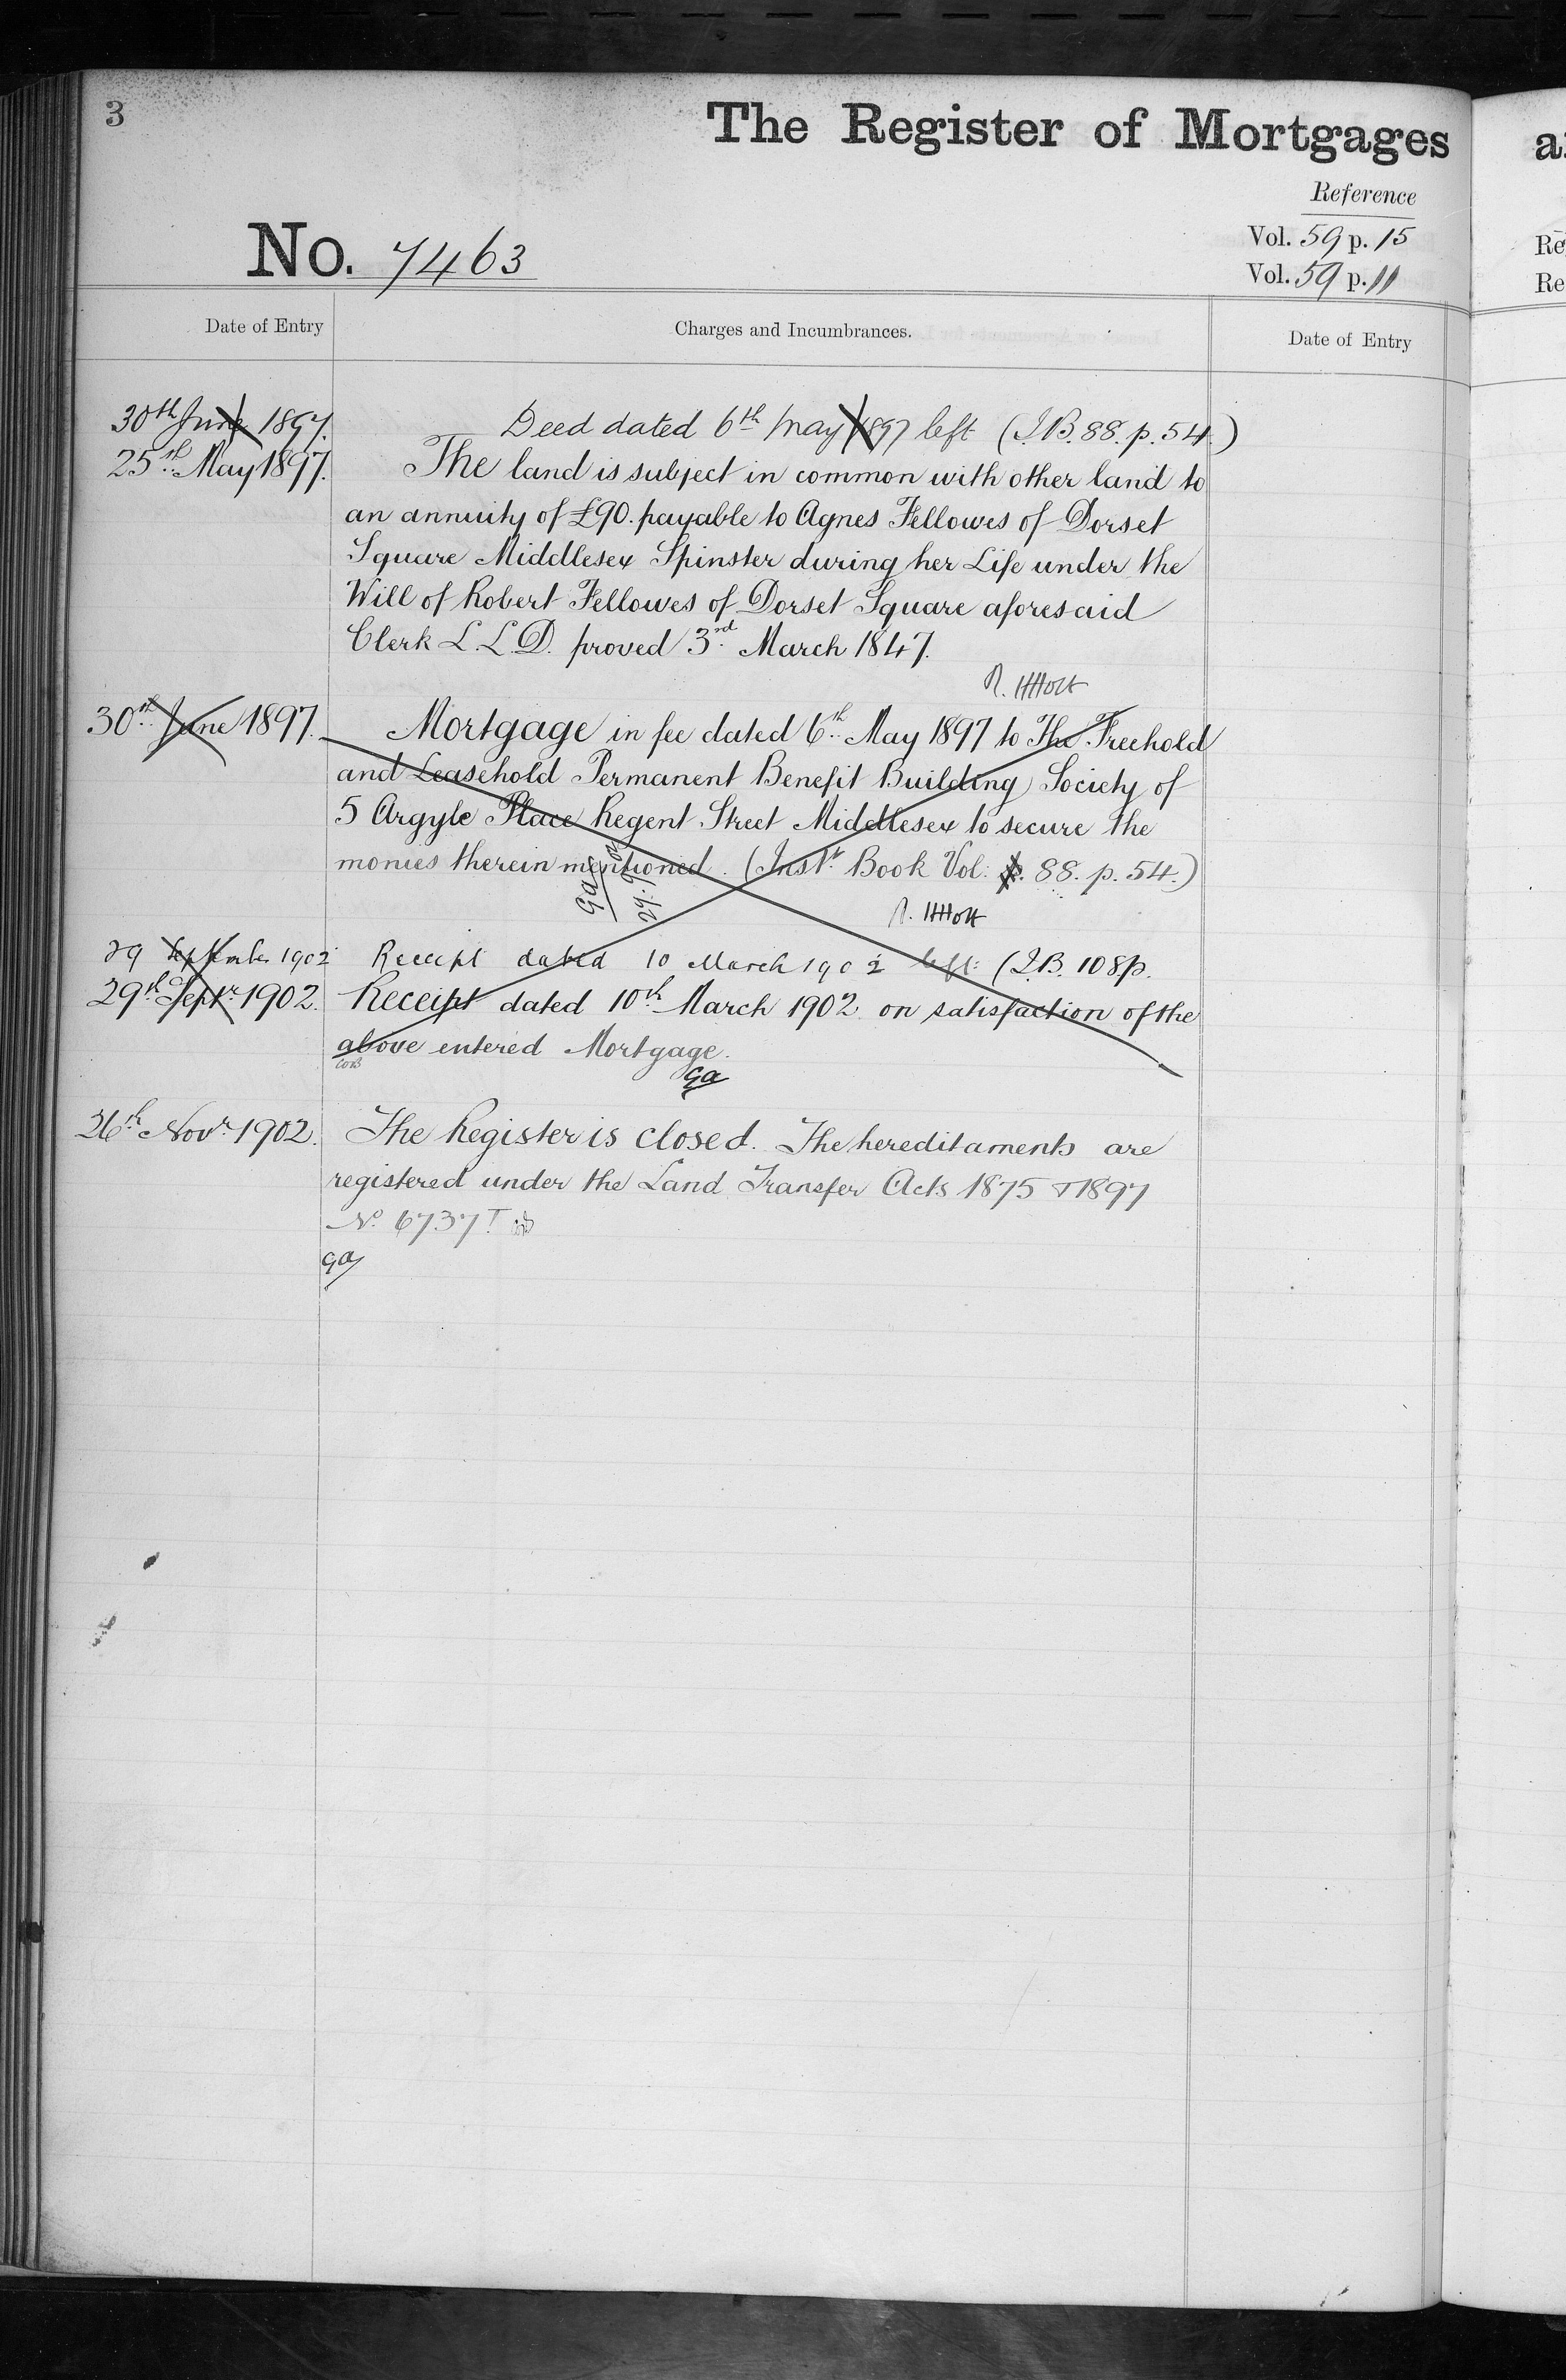 3
The Register of Mortgages
Reference
Vol. 59 p. 15
No. 7463
Vol. 59 p. 11
Date of Entry
Charges and Incumbrances.
Date of Entry
30th June 1897. Deed dated 6th May 1897 left (I.B. 88. p. 54.)
25th May 1897. The land is subject in common with other land to
an annuity of £90. payable to Agnes Fellowes of Dorset
Square Middlesex Spinster during her Life under the
Will of Robert Fellowes of Dorset Square aforesaid
Clerk L.L.D. proved 3rd March 1847.
R. HHolt
30th June 1897. Mortgage in fee dated 6th May 1897 to The Freehold
and Leasehold Permanent Benefit Building Society of
5 Argyle Place Regent Street Middlesex to secure the
monies therein mentioned. (Inst. Book Vol. 88. p. 54.)
R. HHolt
29 September 1902 Receipt dated 10 March 1902 left (I.B. 108 p.
29th Septr. 1902. Receipt dated 10th March 1902 on satisfaction of the
above entered Mortgage.
Ga
26th Novr. 1902. The Register is closed. The hereditaments are
registered under the Land Transfer Acts 1875 & 1897
No. 6737 T
Ga
a
Re
Re